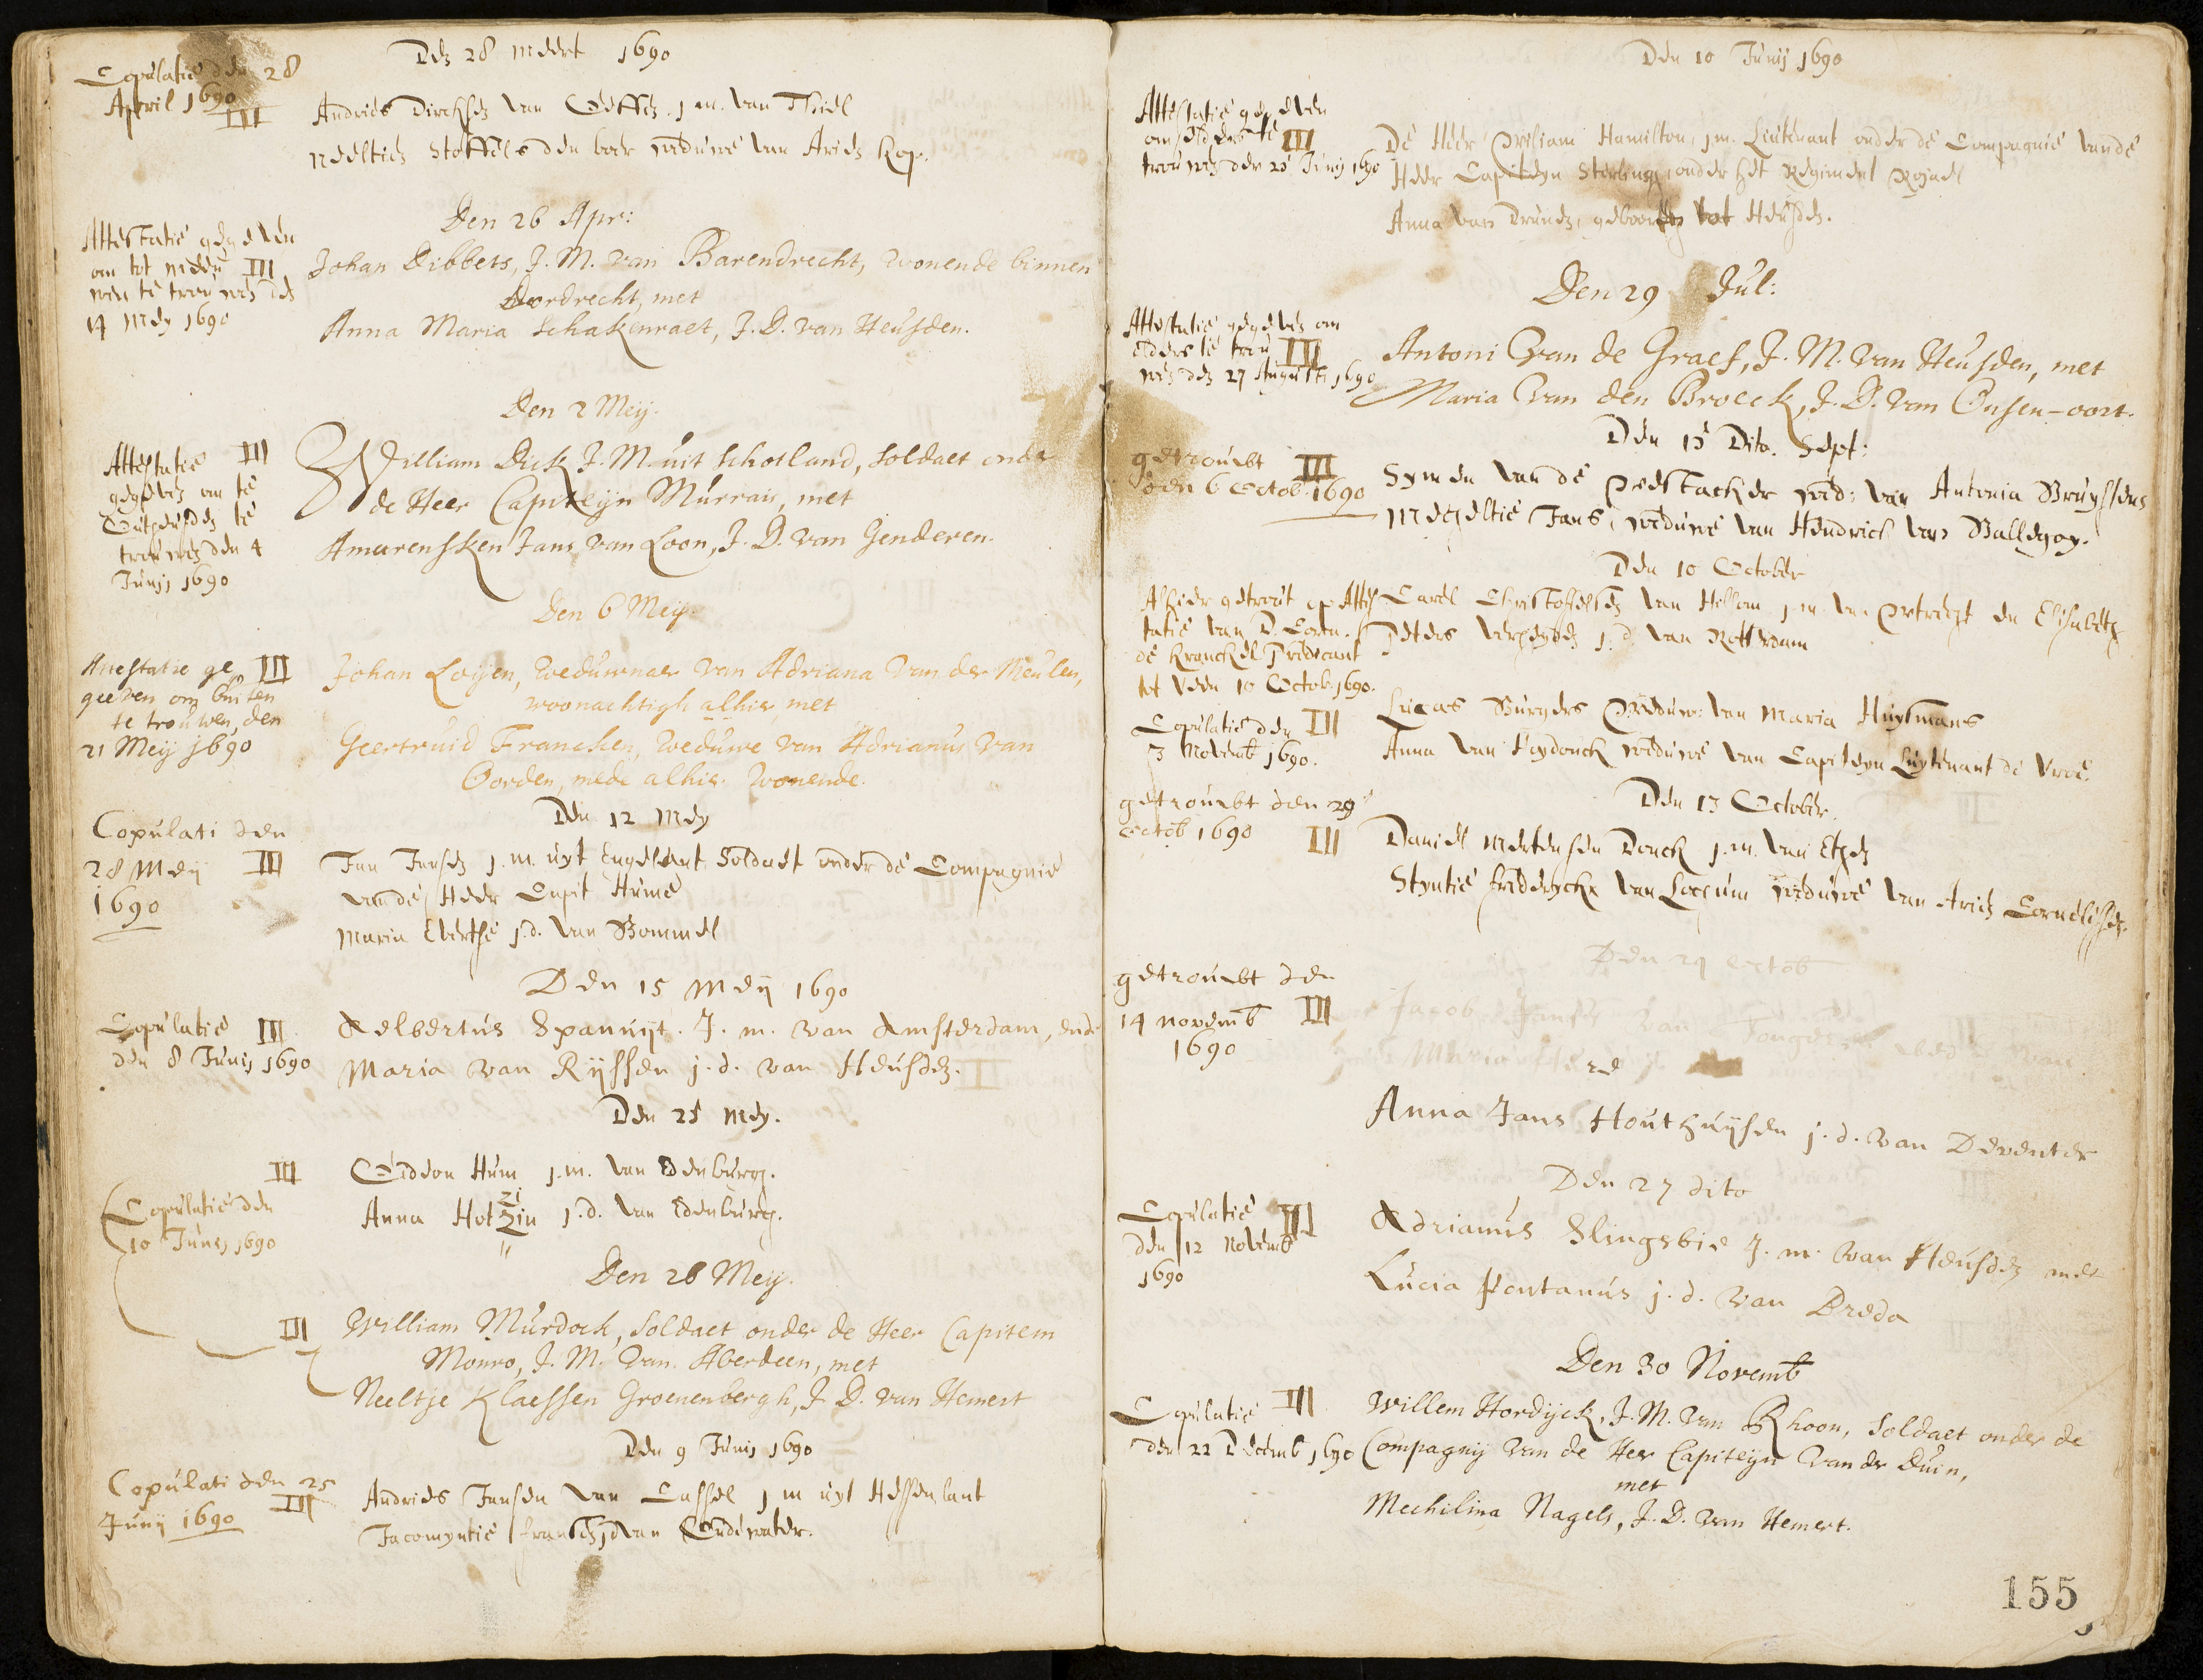 Copulatie den 28
April 1690
III
Den 28 Meert 1690
Andries Dircksen van Oeffen. j.m. van Thiel
Neeltien Stoffels den boer weduwe van Arien Kop.
Attestatie gegeven
om tot Meeu III
wen te trouwen den
14 Mey 1690
Den 26 Apr:
Johan Dibbets, J. M. van Barendrecht, wonende binnen
Dordrecht, met
Anna Maria Schakenraet, J. D. van Heusden.
Attestatie III
gegeven om te
Outheusden te
trouwen den 4
Junij 1690
Den 2 Meij.
William Dick J. M. uit Schotland, Soldaet onder
de Heer Capiteijn Murrai, met
Amarensken Jans van Loon, J. D. van Genderen.
Attestatie ge III
geeven om buiten
te trouwen, den
21 Meij 1690
Den 6 Meij.
Johan Loijen, weduwnaer van Adriana van der Meulen,
woonachtigh alhier, met
Geertruid Francken, weduwe van Adrianus van
Oorden, mede alhier wonende.
Copulati den
28 Meij III
1690
Den 12 Mey
Jan Jansen j.m. uyt Engelant Soldaet onder de Compagnie
van de Heer Capit Hume
Maria Everse j.d. van Bommel
Copulatie III
den 8 Junij 1690
Den 15 Meij 1690
Aelbertus Spanuijt. J. m. van Amsterdam, ende
Maria van Rijssen j. d. van Heusden.
Den 25 Mey.
III
Copulatie den
10 Junij 1690
Gideon Hum j.m. van Edenburg.
Anna Hotzin j.d. van Edenburg.
Den 28 Meij.
III
William Murdock, Soldaet onder de Heer Capitein
Monro, J. M. van Aberdeen, met
Neeltje Klaessen Groenenbergh, J. D. van Hemert
Copulati den 25
Junij 1690 III
Den 9 Junij 1690
Andries Jansen van Cassel j m uyt Hessenlant
Jacomyntie fransen jd van Oudewater.
Den 10 Junij 1690
Attestatie gegeven
om elders te III
trouwen den 25 Junij 1690
De Heer Wiliam Hamilton, j.m. Lieutenant onder de Compagnie vande
Heer Capiteyn Sterling, onder het Regiment Rojael
Anna van Drunen, geboortig tot Heusden.
Den 29 Jul:
Attestatie gegeven om
elders te trou III
wen den 27 Augusti 1690
Antoni van de Graef, J. M. van Heusden, met
Maria van den Broeck, J. D. van Onsen-oort.
Den 15 Dito. Sept:
getroudt III
den 6 octob. 1690
Symen van de Weestacker wed: van Antonia Bruyssens
Mecheltie Jans, weduwe van Hendrick van Ballegoy.
Den 10 October
Alhier getrout op Attes
tatie van D. Corn.
de Kranckel Predicant
tot Veen 10 Octob. 1690.
Carel Christoffelsen van Hellom j.m. van Utrecht en Elisabeth
Peters verheyden j. d. van Rotterdam
Copulatie den III
3 Novemb 1690.
Lucas Burgers Weduw: van Maria Huysmans
Anna van Heydonck weduwe van Capiteyn Luytenant de Vroe.
getroudt den 29
octob 1690 III
Den 13 October.
Daniel Mertensen Donck j.m. van Ethen
Styntie fredericks van Lochum weduwe van Arien Cornelissen.
Den 29 octob
getroudt den
14 novemb III
1690
Jacob Jansen van Tongeren
Anna Jans Houthuijsen j. d. van Deventer
Den 27 dito
Copulatie III
den 12 Novemb
1690
Adrianus Slingsbie J. m. van Heusden met
Lucia Pontanus j. d. van Breda
Den 30 Novemb
Copulatie III
den 22 Decemb 1690
Willem Hordijck, J. M. van Rhoon, Soldaet onder de
Compagnij van de Heer Capiteijn van der Duin,
met
Mechilina Nagels, J. D. van Hemert.
155